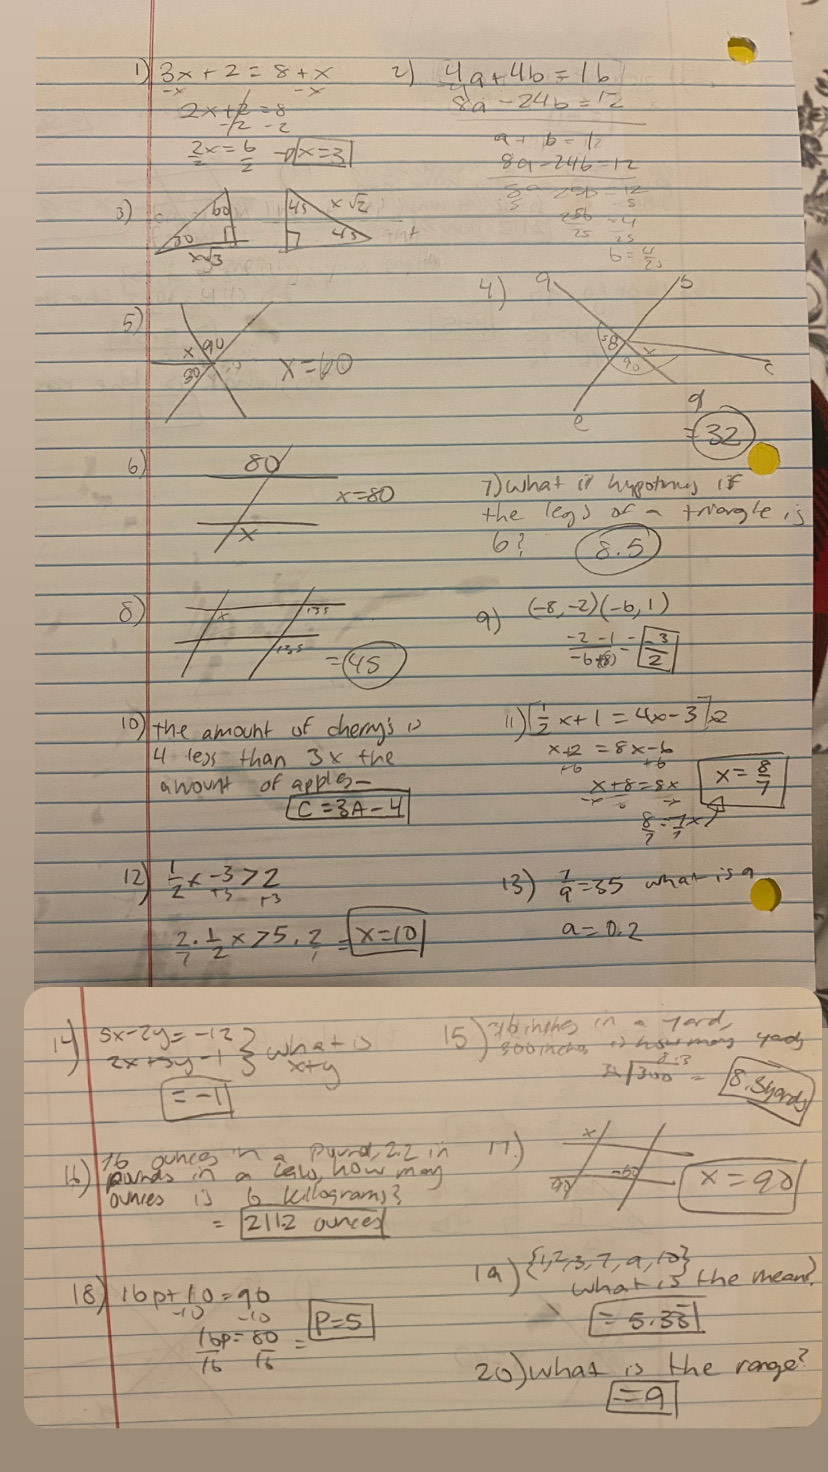 1) 3x + 2 = 8 + x
-x -x
2x + 2 = 8
-2 -2
2x = 6
2 2
x = 3
2) 4a + 4b = 16
8a - 24b = 12
a + b = 12
8a - 24b = 12
25b 4
25 25
b = 4/25
3) 60
30
x√3
45 x√2
45
4) a b
58 x
90 c
d
e
= 32
5) x 90
30
x = 60
6) 80
x = 80
x
7) what is hypotnus if
the legs of a triangle is
6? 8.5
8) x 135
135
= 45
9) (-8, -2) (-6, 1)
-2 -1 = -3
-6+(8) 2
10) the amount of cherrys is
4 less than 3x the
amount of apples
C = 3A - 4
11) [1/2 x + 1 = 4x - 3] x2
x+2 = 8x - 6
+6 +6
x + 8 = 8x
-x -x
8/7 = 7/7 x
x = 8/7
12) 1/2 x - 3 > 2
+3 +3
2/1 · 1/2 x > 5 · 2/1 = x = 10
13) 7/a = 35 what is a
a = 0.2
14) 5x - 2y = -12
2x + 3y - 1 } what is
x+y
= -1
15) 36 inches in a yard,
300 inches is how many yards
8.3
300 = 8.3 yards
16) 16 ounces in a pound, 2.2 in
pounds in a how many
ounces is 6 kilograms?
= 2112 ounces
17.) x
x = 90
18) 16p + 10 = 90
-10 -10
16p = 80 =
16 16
P = 5
19) {1, 2, 3, 7, 9, 10}
what is the mean?
= 5.33
20) what is the range?
= 9